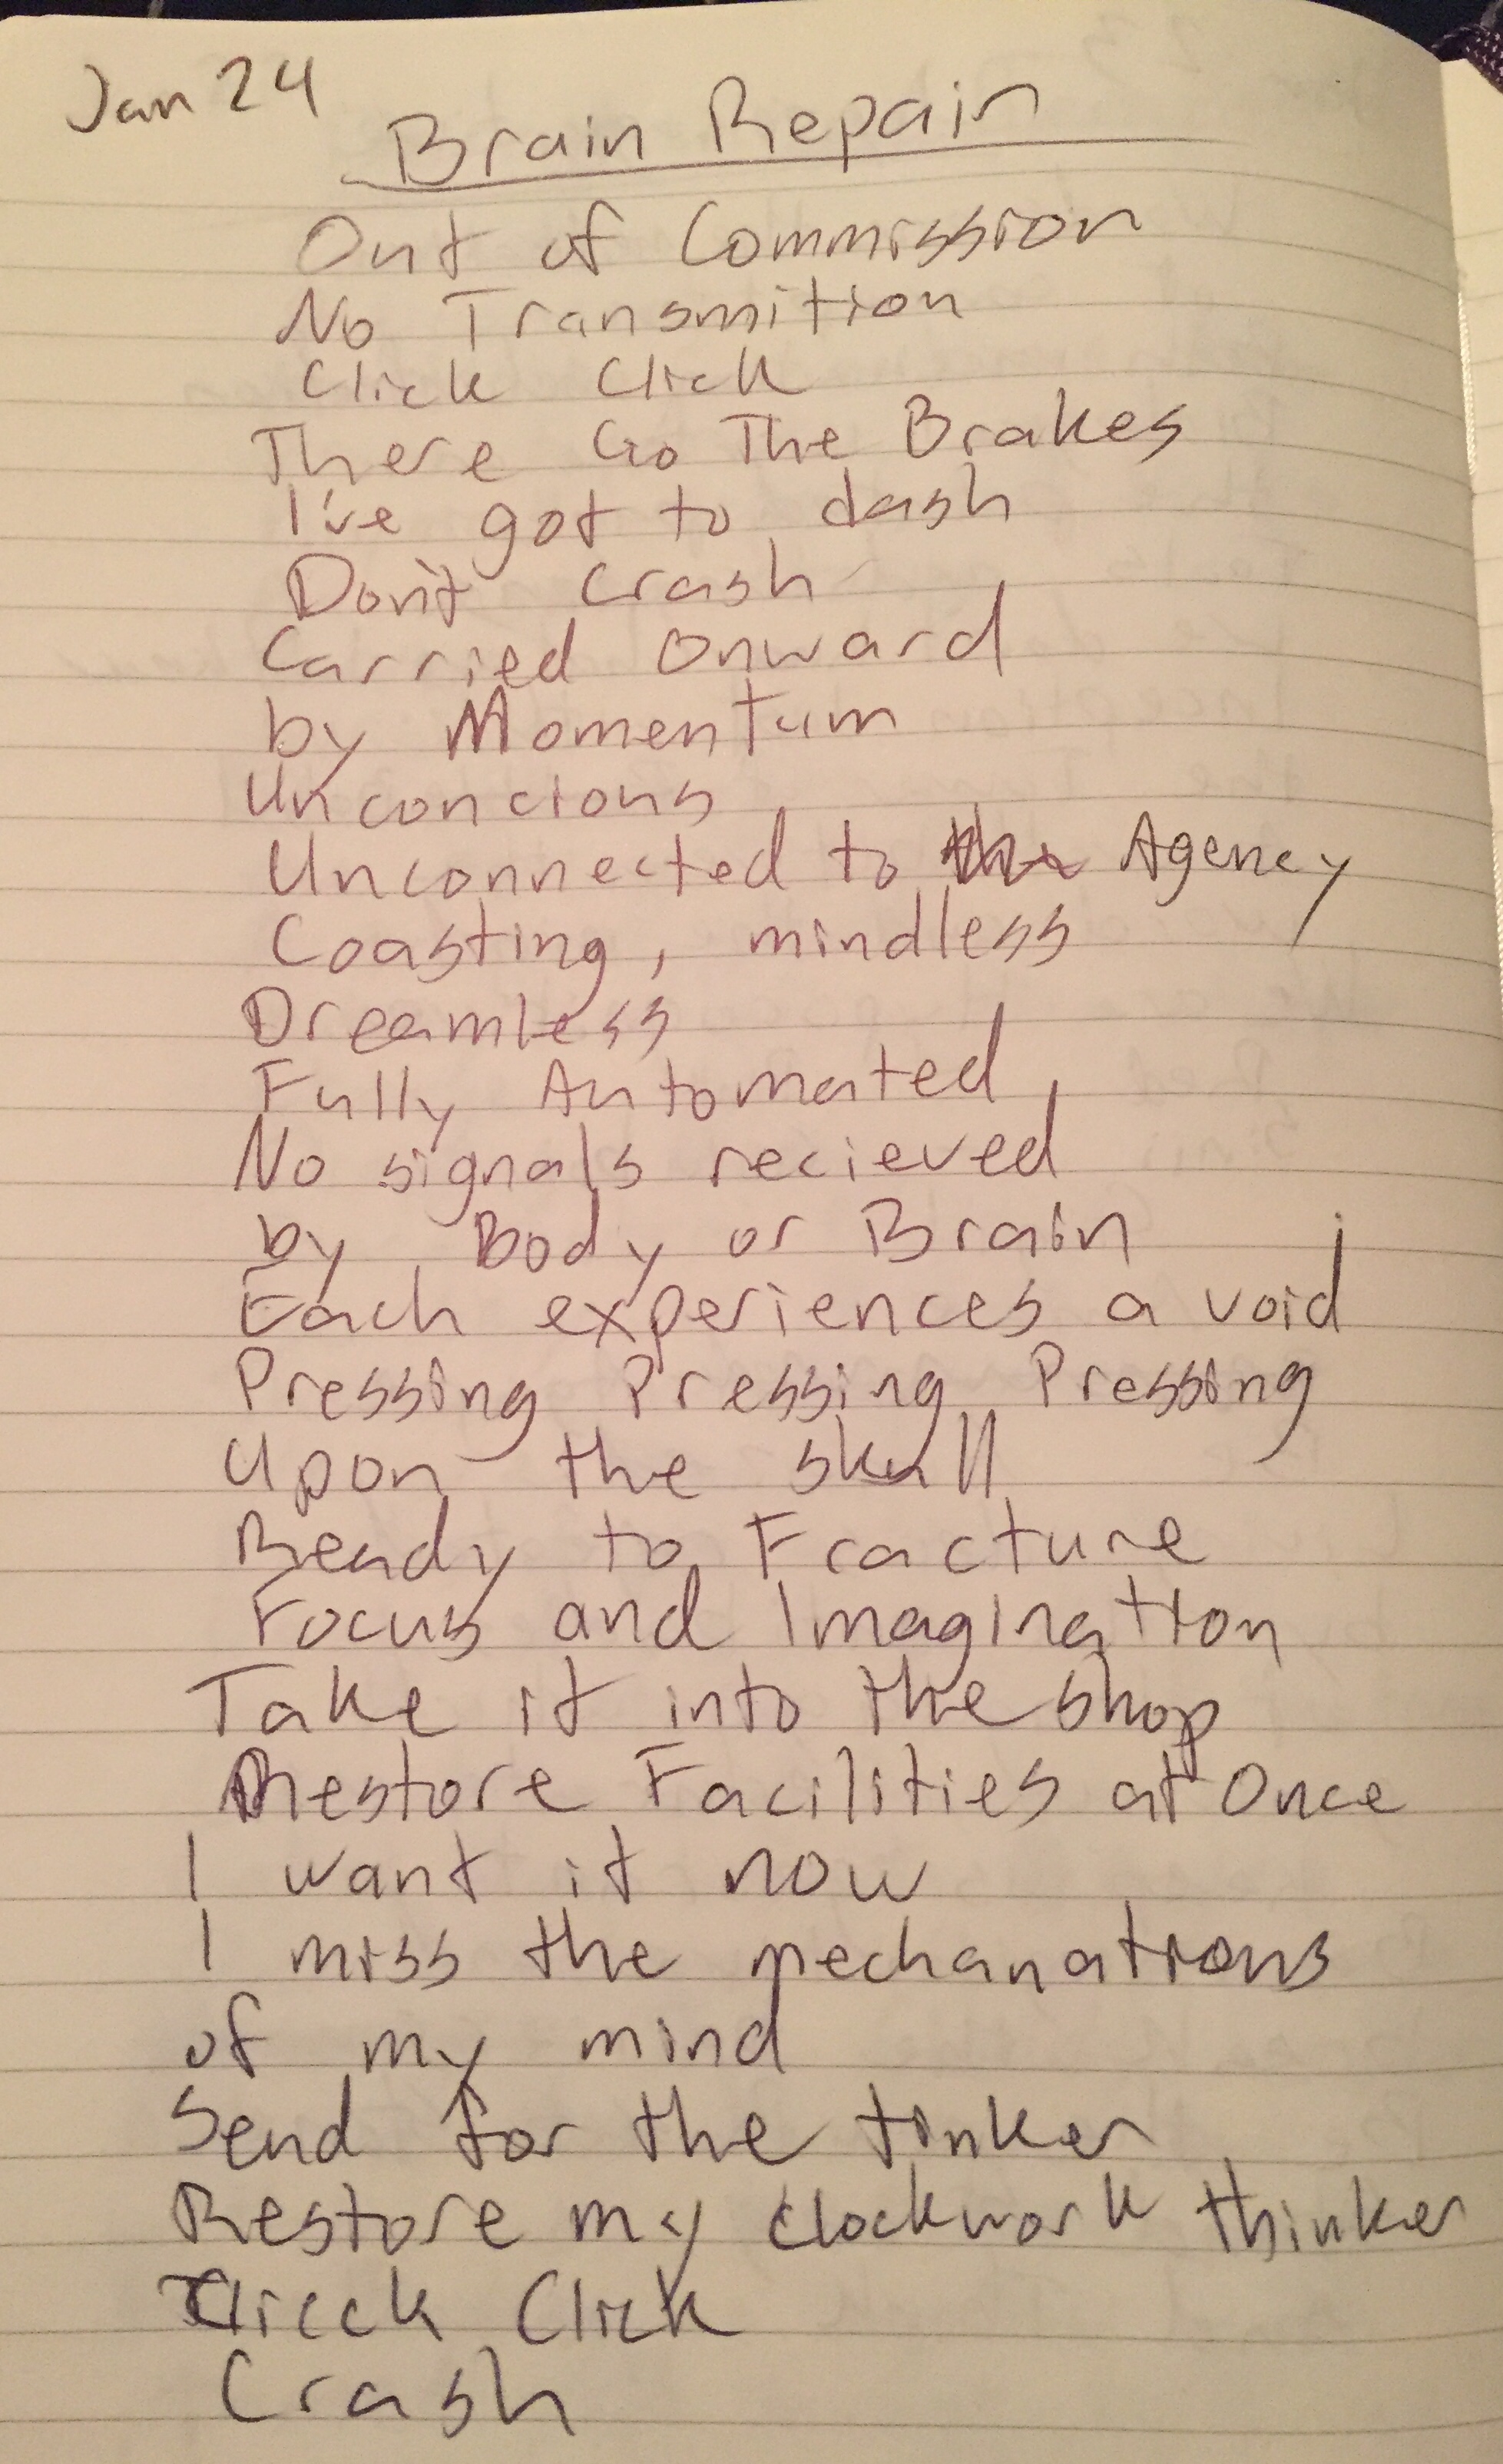 Jan 24
Brain Repair
Out of Commission
No Transmition
Click Click
There Go The Brakes
I've got to dash
Don't crash
Carried Onward
by Momentum
Unconcious
Unconnected to the Agency
Coasting, mindless
Dreamless
Fully Automated
No signals recieved
by Body or Brain
Each experiences a void
Pressing Pressing Pressing
Upon the skull
Ready to Fracture
Focus and Imagination
Take it into the shop
Restore Facilities at Once
I want it now
I miss the mechanations
of my mind
Send for the tinker
Restore my clockwork thinker
Clicck Click
Crash